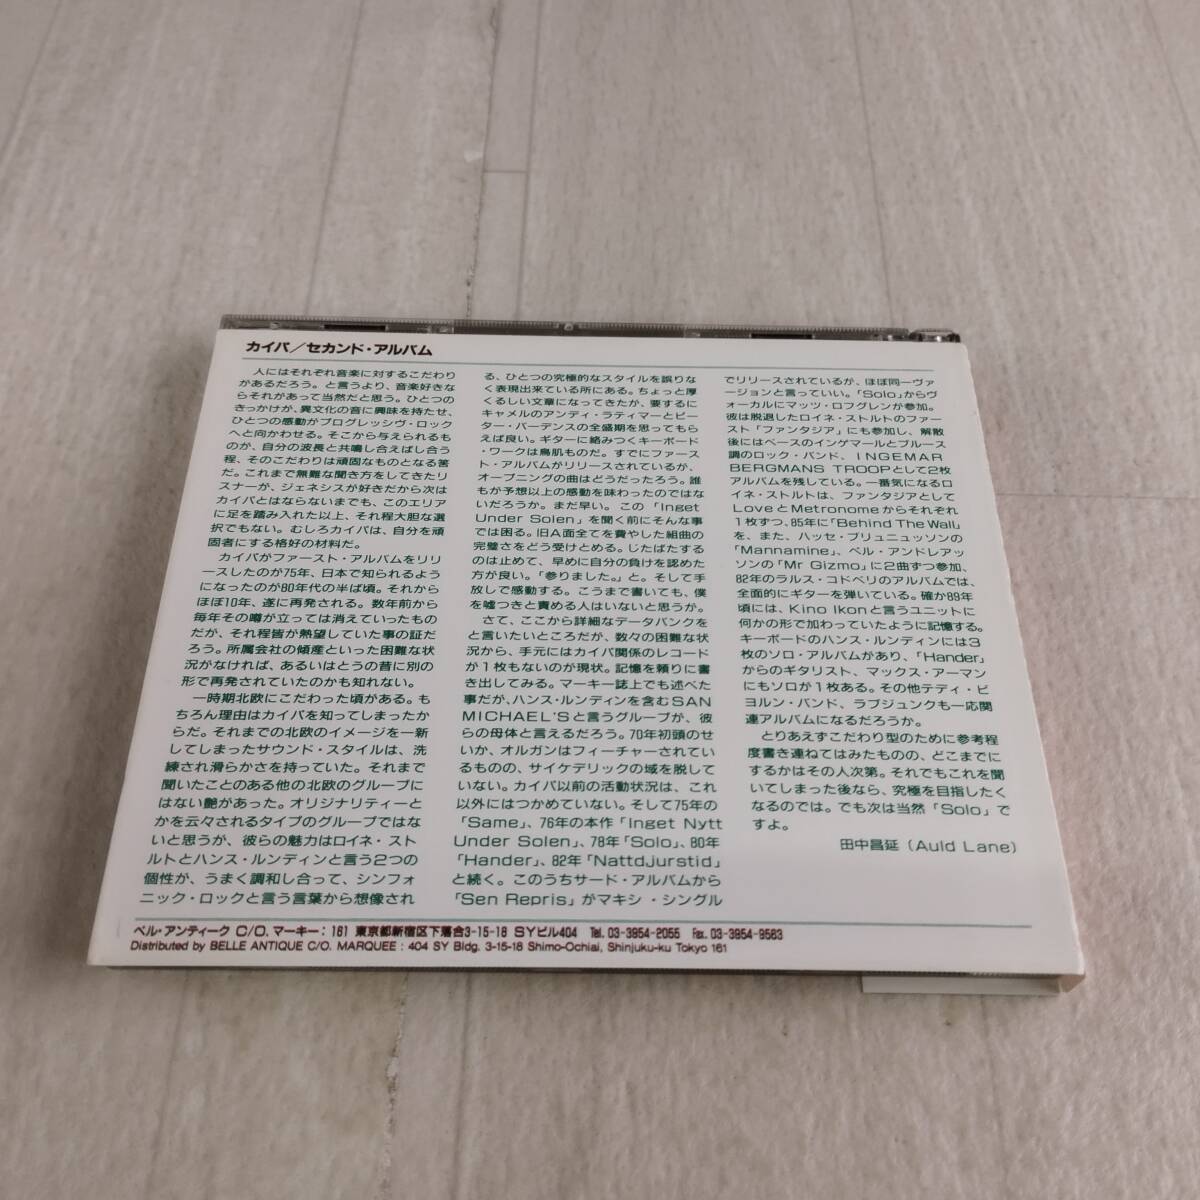 カイパ／セカンド・アルバム
　人にはそれぞれ音楽に対するこだわり
があるだろう。と言うより、音楽好きな
らそれがあって当然だと思う。ひとつの
きっかけが、異文化の音に興味を持たせ、
ひとつの感動がプログレッシヴ・ロック
へと向かわせる。そこから与えられるも
のが、自分の波長と共鳴し合えばし合う
程、そのこだわりは頑固なものとなる筈
だ。これまで無難な聞き方をしてきたリ
スナーが、ジェネシスが好きだから次は
カイパとはならないまでも、このエリア
に足を踏み入れた以上、それ程大胆な選
択でもない。むしろカイパは、自分を頑
固者にする格好の材料だ。
　カイパがファースト・アルバムをリリ
ースしたのが75年、日本で知られるよう
になったのが80年代の半ば頃。それから
ほぼ10年、遂に再発される。数年前から
毎年その噂が立っては消えていったもの
だが、それ程皆が熱望していた事の証だ
ろう。所属会社の傾産といった困難な状
況がなければ、あるいはとうの昔に別の
形で再発されていたのかも知れない。
　一時期北欧にこだわった頃がある。も
ちろん理由はカイパを知ってしまったか
らだ。それまでの北欧のイメージを一新
してしまったサウンド・スタイルは、洗
練され滑らかさを持っていた。それまで
聞いたことのある他の北欧のグループに
はない艶があった。オリジナリティーと
かを云々されるタイプのグループではな
いと思うが、彼らの魅力はロイネ・スト
ルトとハンス・ルンディンと言う2つの
個性が、うまく調和し合って、シンフォ
ニック・ロックと言う言葉から想像され
る、ひとつの究極的なスタイルを誤りな
く表現出来ている所にある。ちょっと厚
くるしい文章になってきたが、要するに
キャメルのアンディ・ラティマーとピー
ター・バーデンスの全盛期を思ってもら
えば良い。ギターに絡みつくキーボード
・ワークは鳥肌ものだ。すでにファース
ト・アルバムがリリースされているが、
オープニングの曲はどうだったろう。誰
もが予想以上の感動を味わったのではな
いだろうか。まだ早い。この「Inget
Under Solen」を聞く前にそんな事
では困る。旧A面全てを費やした組曲の
完璧さをどう受けとめる。じたばたする
のは止めて、早めに自分の負けを認めた
方が良い。「参りました。」と。そして手
放しで感動する。こうまで書いても、僕
を嘘つきと責める人はいないと思うが。
　さて、ここから詳細なデータバンクを
と言いたいところだが、数々の困難な状
況から、手元にはカイパ関係のレコード
が1枚もないのが現状。記憶を頼りに書
き出してみる。マーキー誌上でも述べた
事だが、ハンス・ルンディンを含むSAN
MICHAEL'Sと言うグループが、彼
らの母体と言えるだろう。70年初頭のせ
いか、オルガンはフィーチャーされてい
るものの、サイケデリックの域を脱して
いない。カイパ以前の活動状況は、これ
以外にはつかめていない。そして75年の
「Same」、76年の本作「Inget Nytt
Under Solen」、78年「Solo」、80年
「Hander」、82年「Nattdjurstid」
と続く。このうちサード・アルバムから
「Sen Repris」がマキシ・シングル
でリリースされているが、ほぼ同一ヴァ
ージョンと言っていい。「Solo」からヴ
ォーカルにマッツ・ロフグレンが参加。
彼は脱退したロイネ・ストルトのファー
スト「ファンタジア」にも参加し、解散
後にはベースのインゲマールとブルース
調のロック・バンド、INGEMAR
BERGMANS TROOPとして2枚
アルバムを残している。一番気になるロ
イネ・ストルトは、ファンタジアとして
LoveとMetronomeからそれぞれ
1枚ずつ、85年に「Behind The Wall」
を、また、ハッセ・ブリュニュッソンの
「Mannamine」、ベル・アンドレアッ
ソンの「Mr Gizmo」に2曲ずつ参加、
82年のラルス・コドベリのアルバムでは、
全面的にギターを弾いている。確か89年
頃には、Kino Ikonと言うユニットに
何かの形で加わっていたように記憶する。
キーボードのハンス・ルンディンには3
枚のソロ・アルバムがあり、「Hander」
からのギタリスト、マックス・アーマン
にもソロが1枚ある。その他テディ・ビ
ヨルン・バンド、ラブジュンクも一応関
連アルバムになるだろうか。
　とりあえずこだわり型のために参考程
度書き連ねてはみたものの、どこまでに
するかはその人次第。それでもこれを聞
いてしまった後なら、究極を目指したく
なるのでは。でも次は当然「Solo」で
すよ。
田中昌延（Auld Lane）
ベル・アンティーク C/O. マーキー：161 東京都新宿区下落合3-15-18 SYビル404 Tel. 03-3954-2055 Fax. 03-3954-9583
Distributed by BELLE ANTIQUE C/O. MARQUEE : 404 SY Bldg. 3-15-18 Shimo-Ochiai, Shinjuku-ku Tokyo 161